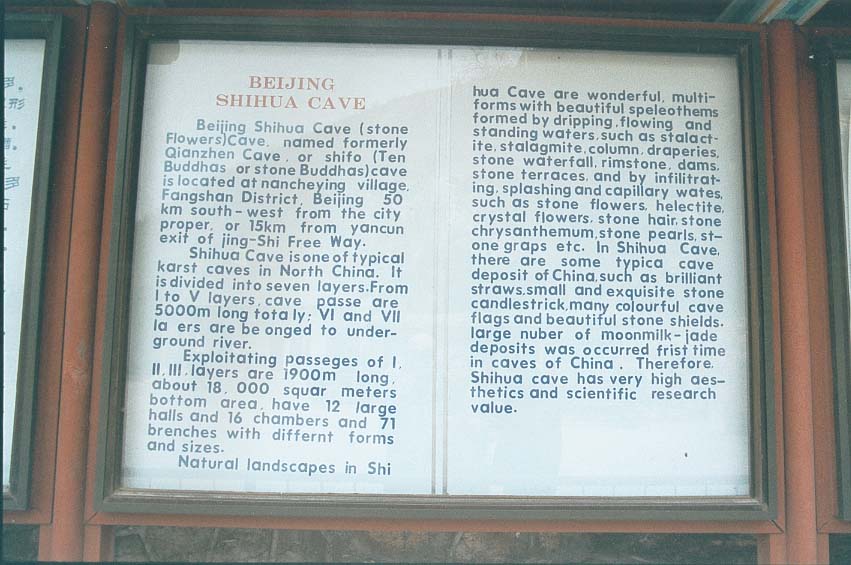 BEIJING
SHIHUA CAVE
Beijing Shihua Cave (stone
Flowers)Cave, named formerly
Qianzhen Cave, or shifo (Ten
Buddhas or stone Buddhas)cave
is located at nancheying village,
Fangshan District, Beijing 50
km south-west from the city
proper, or 15km from yancun
exit of jing-Shi Free Way.
Shihua Cave isone of typical
karst caves in North China. It
is divided into seven layers.From
I to V layers, cave passe are
5000m long tota ly; VI and VII
la ers are be onged to under-
ground river.
Exploitating passeges of I,
II,III,layers are 1900m long,
about 18,000 squar meters
bottom area, have 12 large
halls and 16 chambers and 71
brenches with differnt forms
and sizes.
Natural landscapes in Shi
hua Cave are wonderful, multi-
forms with beautiful speleothems
formed by dripping,flowing and
standing waters,such as stalact-
ite,stalagmite,column,draperies,
stone waterfall,rimstone, dams,
stone terraces, and by infilitrat-
ing, splashing and capillary wates,
such as stone flowers, helectite,
crystal flowers, stone hair, stone
chrysanthemum,stone pearls, st-
one graps etc. In Shihua Cave,
there are some typica cave
deposit of China,such as brilliant
straws,small and exquisite stone
candlestrick,many colourful cave
flags and beautiful stone shields.
large nuber of moonmilk-jade
deposits was occurred frist time
in caves of China. Therefore,
Shihua cave has very high aes-
thetics and scientific research
value.